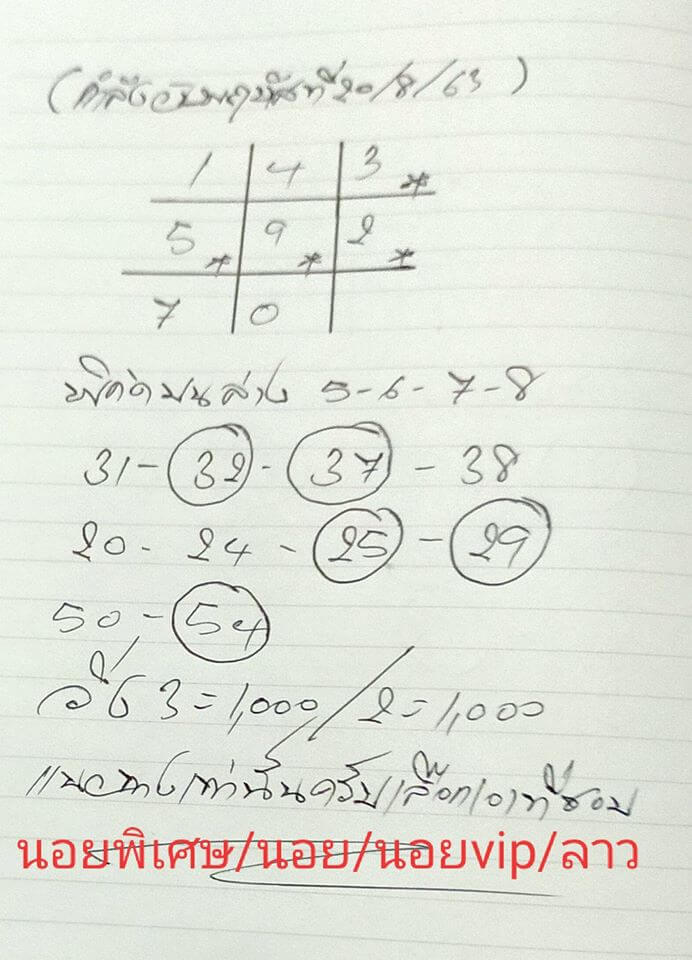 (กำลังวันพฤหัสที่ 20/8/63)
1 4 3 *
5 * 9 * 2 *
7 0
พิกัดบนล่าง 5-6-7-8
31-32-37-38
20-24-25-29
50-54
วิ่ง 3=1,000/2=1,000
แนวทางเท่านั้นครับ/เลือกเอาที่ชอบ
นอยพิเศษ/นอย/นอยvip/ลาว